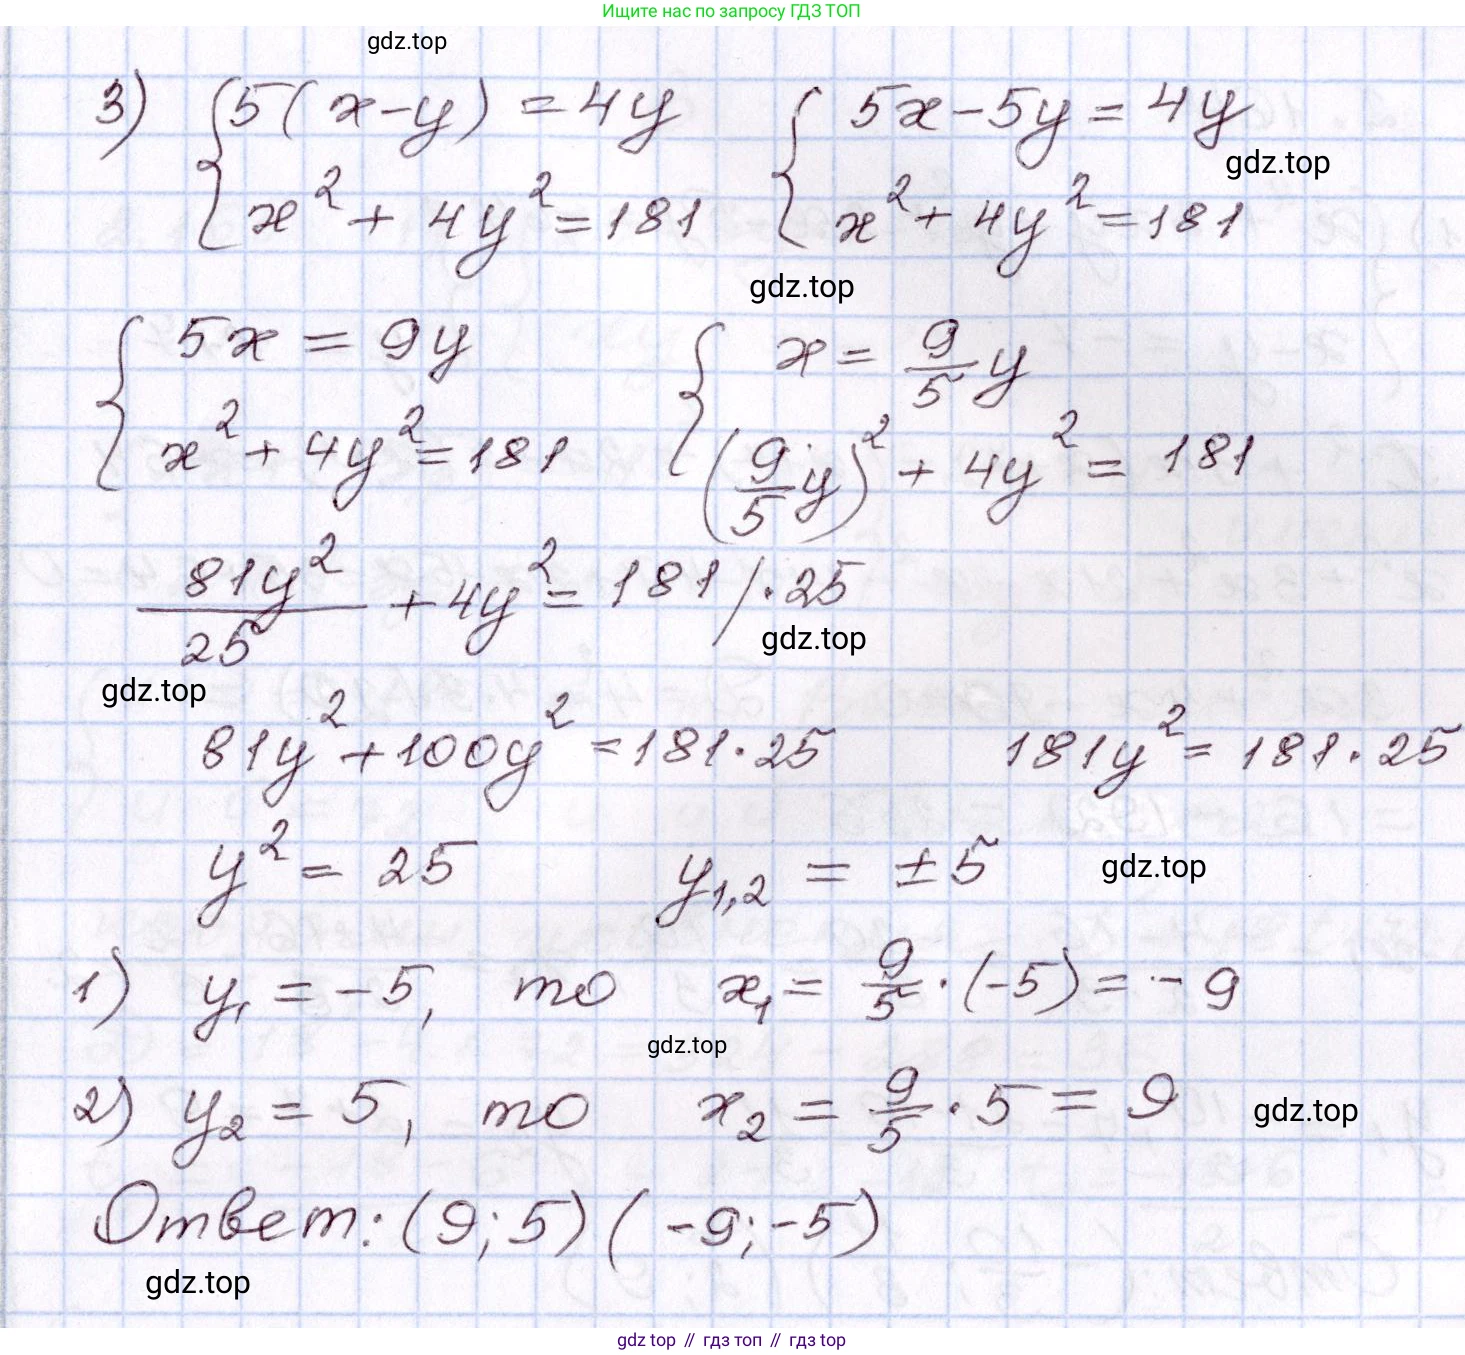 Ищите нас по запросу ГДЗ ТОП
gdz.top
3) { 5(x-y) = 4y { 5x-5y = 4y
gdz.top
x² + 4y² = 181 x² + 4y² = 181
gdz.top
{ 5x = 9y { x = 9/5 y
x² + 4y² = 181 (9/5 y)² + 4y² = 181
81y²/25 + 4y² = 181 / · 25
gdz.top
gdz.top
81y² + 100y² = 181 · 25 181y² = 181 · 25
y² = 25 y1,2 = ±5 gdz.top
1) y₁ = -5, то x₁ = 9/5 · (-5) = -9
gdz.top
2) y₂ = 5, то x₂ = 9/5 · 5 = 9 gdz.top
Ответ: (9; 5) (-9; -5)
gdz.top
gdz top // гдз топ // гдз top